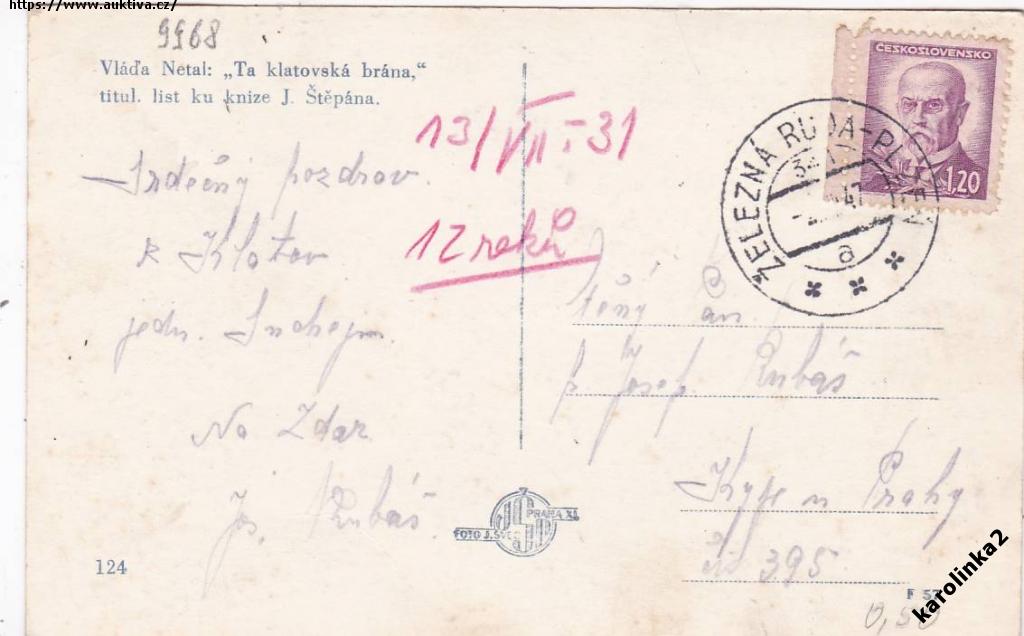 https://www.auktiva.cz/
9968
Vláďa Netal: „Ta klatovská brána,“
titul. list ku knize J. Štěpána.
13/VII-31
12 roků
Srdečný pozdrav
z Klatov
jedn.
Na Zdar
Jos. Rubáš
124
ČESKOSLOVENSKO
1,20
ŽELEZNÁ RUDA-
47
a
Ctěný Pan
p. Josef Rubáš
Kyje u Prahy
čís 395
FOTO J. ŠVEC
PRAHA XI.
F 57
0,50
karolinka2